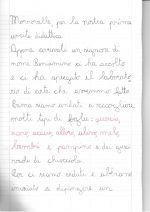 Mormoratte, per la nostra prima
uscita didattica.
Appena arrivati un signore di
nome Beniamino ci ha accolto
e ci ha spiegato il laborato-
rio di arte che avremmo fatto.
Prima siamo andati a raccogliere
molti tipi di foglie: quercia,
noce, acero, alloro, ulivo, melo,
bambù e pampino e dei gusci
vuoti di chiocciola.
Poi ci siamo seduti e abbiamo
iniziato a dipingere un